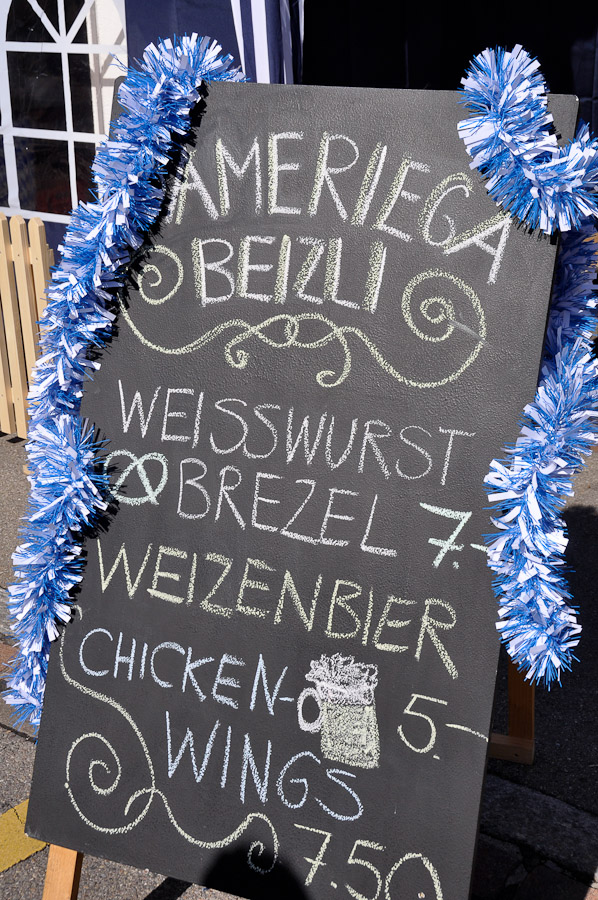 AMERIEGA
BEIZLI
WEISSWURST
BREZEL 7.-
WEIZENBIER
5.-
CHICKEN-
WINGS
7.50